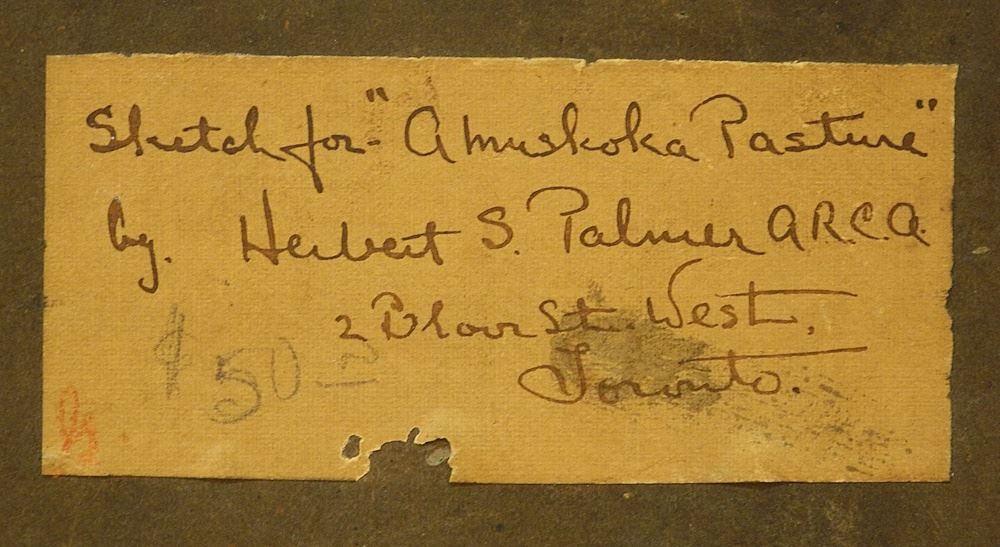 Sketch for - "A Muskoka Pasture"
by. Herbert S. Palmer A.R.C.A.
2 Bloor St. West.
Toronto.
$50